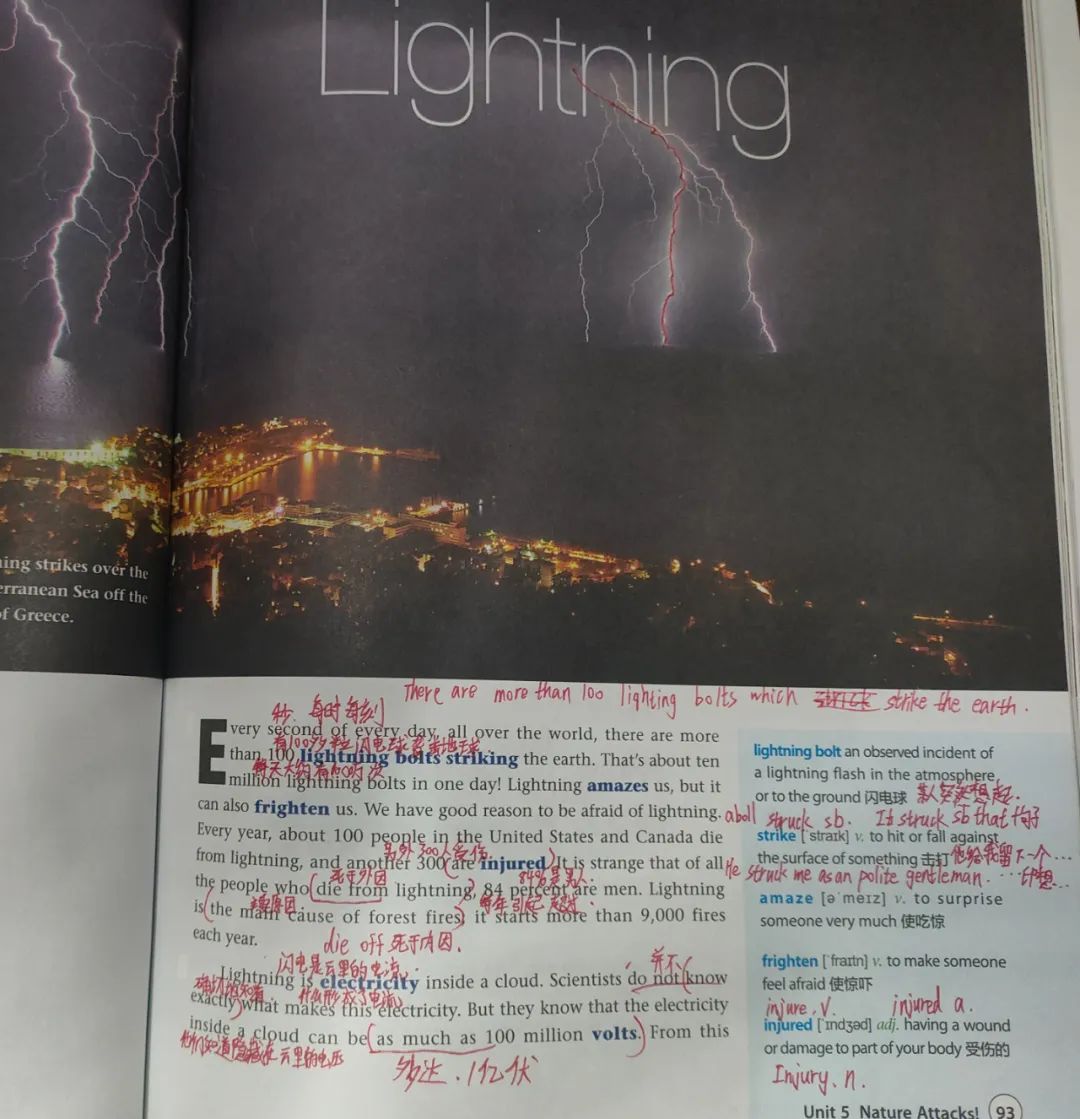 Lightning
ning strikes over the
erranean Sea off the
of Greece.
There are more than 100 lighting bolts which strike the earth.
秒、每时每刻
Every second of every day, all over the world, there are more
有100多粒闪电球袭击地球.
than 100 lightning bolts striking the earth. That's about ten
每天大约有
million lightning bolts in one day! Lightning amazes us, but it
can also frighten us. We have good reason to be afraid of lightning.
Every year, about 100 people in the United States and Canada die
另外300人受伤
from lightning, and another 300 are injured. It is strange that of all
死于外因 84%是男人.
the people who die from lightning, 84 percent are men. Lightning
主要原因 每年引起 超过.
is the main cause of forest fires; it starts more than 9,000 fires
each year.
die off 死于内因.
闪电是云里的电流.
并不
Lightning is electricity inside a cloud. Scientists do not know
确切的知道 什么形成了电流
exactly what makes this electricity. But they know that the electricity
inside a cloud can be as much as 100 million volts. From this
他们知道隐藏在云里的电压
多达.1亿伏
lightning bolt an observed incident of
a lightning flash in the atmosphere
or to the ground 闪电球
某人突然想起.
a boll struck sb. It struck sb that 句子
strike [ˈstraɪk] v. to hit or fall against
the surface of something 击打
他给我留下一个…
He struck me as an polite gentleman. …印想…
amaze [əˈmeɪz] v. to surprise
someone very much 使吃惊
frighten [ˈfraɪtn] v. to make someone
feel afraid 使惊吓
injure. v. injured a.
injured [ˈɪndʒəd] adj. having a wound
or damage to part of your body 受伤的
Injury. n.
Unit 5 Nature Attacks! 93